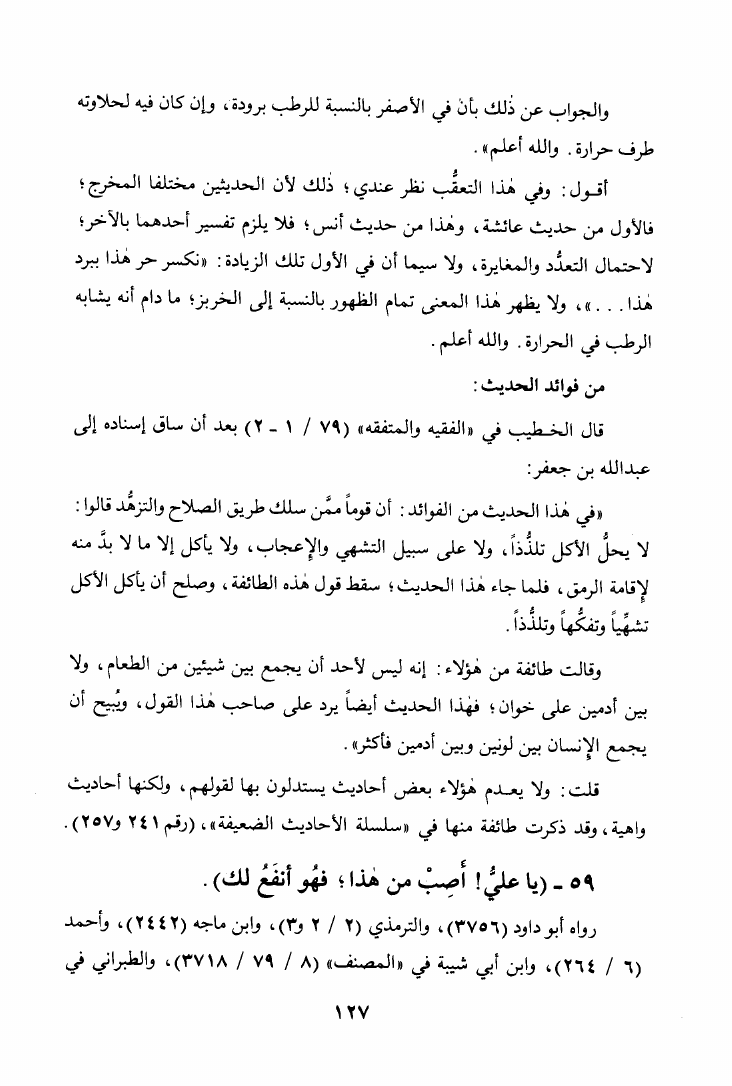 والجواب عن ذٰلك بأن في الأصفر بالنسبة للرطب برودة، وإن كان فيه لحلاوته
طرف حرارة. والله أعلم».
أقـول: وفي هٰذا التعقُّب نظر عندي؛ ذٰلك لأن الحديثين مختلفا المخرج؛
فالأول من حديث عائشة، وهٰذا من حديث أنس؛ فلا يلزم تفسير أحدهما بالآخر؛
لاحتمال التعدُّد والمغايرة، ولا سيما أن في الأول تلك الزيادة: «نكسر حر هٰذا ببرد
هٰذا...»، ولا يظهر هٰذا المعنى تمام الظهور بالنسبة إلى الخربز؛ ما دام أنه يشابه
الرطب في الحرارة. والله أعلم.
من فوائد الحديث:
قال الخـطيب في «الفقيه والمتفقه» (٧٩ / ١ - ٢) بعد أن ساق إسناده إلى
عبدالله بن جعفر:
«في هٰذا الحديث من الفوائد: أن قوماً ممَّن سلك طريق الصلاح والتزهُّد قالوا:
لا يحلُّ الأكل تلذُّذاً، ولا على سبيل التشهي والإعجاب، ولا يأكل إلا ما لا بدَّ منه
لإقامة الرمق، فلما جاء هٰذا الحديث؛ سقط قول هٰذه الطائفة، وصلح أن يأكل الأكل
تشهِّياً وتفكُّهاً وتلذُّذاً.
وقالت طائفة من هٰؤلاء: إنه ليس لأحد أن يجمع بين شيئين من الطعام، ولا
بين أدمين على خوان؛ فهٰذا الحديث أيضاً يرد على صاحب هٰذا القول، ويُبيح أن
يجمع الإنسان بين لونين وبين أدمين فأكثر».
قلت: ولا يعـدم هٰؤلاء بعض أحاديث يستدلون بها لقولهم، ولكنها أحاديث
واهية، وقد ذكرت طائفة منها في «سلسلة الأحاديث الضعيفة»، (رقم ٢٤١ و٢٥٧).
٥٩ - (يا عليُّ! أَصِبْ من هٰذا؛ فهُو أنفَعُ لك).
رواه أبو داود (٣٧٥٦)، والترمذي (٢ / ٢ و٣)، وابن ماجه (٢٤٤٢)، وأحمد
(٦ / ٢٦٤)، وابن أبي شيبة في «المصنف» (٨ / ٧٩ / ٣٧١٨)، والطبراني في
١٢٧